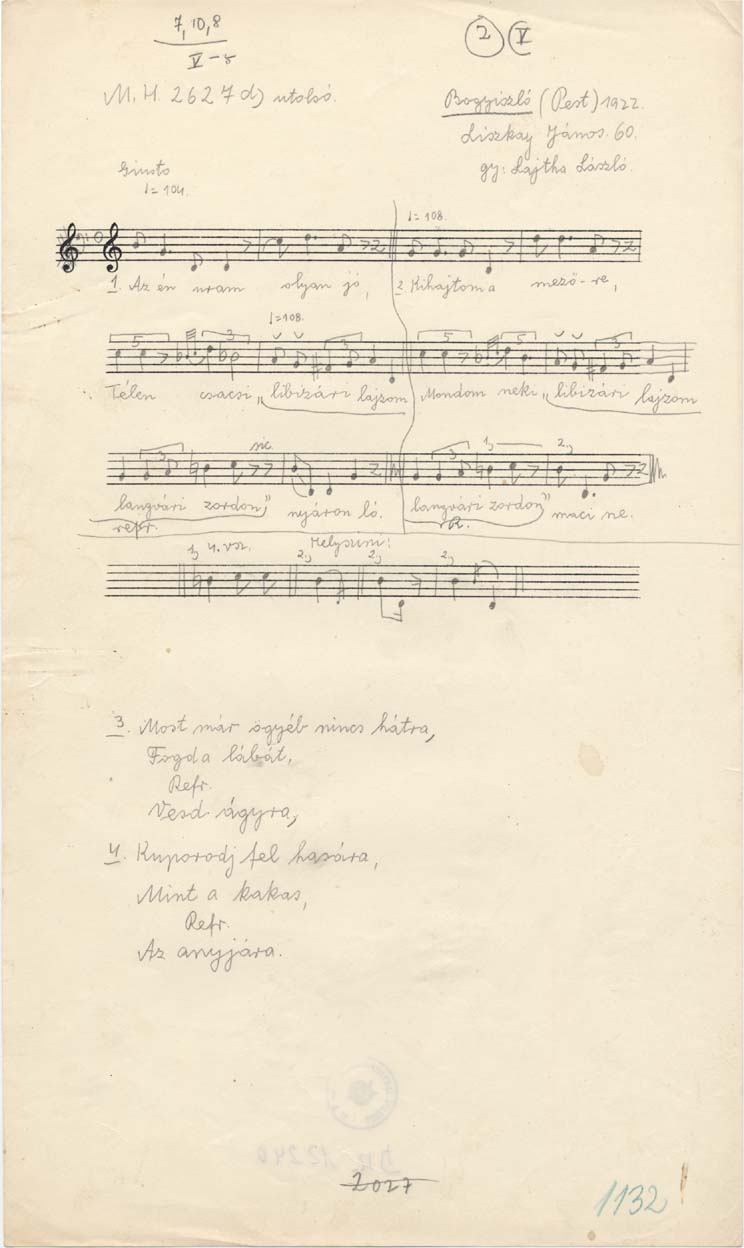 7, 10, 8
V
2 V
M. H. 2627 d) utolsó.
Bogyiszló (Pest) 1922.
Liszkay János. 60.
gy: Lajtha László.
Giusto
♩= 104.
♩= 108.
1. Az én uram olyan jó, 2. Kihajtom a mező-re,
♩=108.
5 3 3 5 5 3
Télen csacsi „libizári lajzom Mondom neki „libizári lajzom
3 sic. 3 1) 2.)
langvári zordon" nyáron ló. langvári zordon" maci ne.
refr. R.
1) 4. vsz. Helyszíni:
2.) 2.) 2.)
3. Most már ögyéb nincs hátra,
Fogda lábát,
Refr.
Vesd ágyra,
4. Kuporodj fel hasára,
Mint a kakas,
Refr.
Az anyjára.
2027
1132